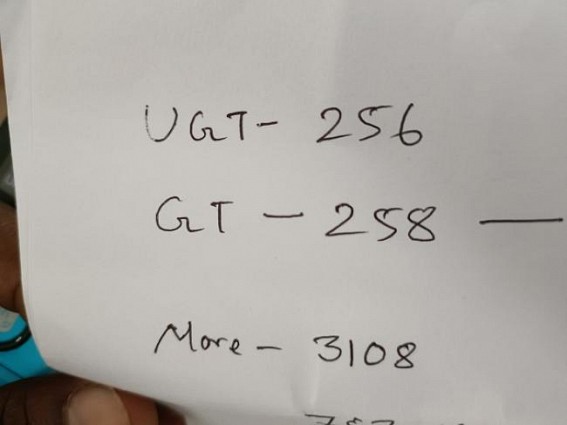 UGT- 256
GT - 258 —
More - 3108